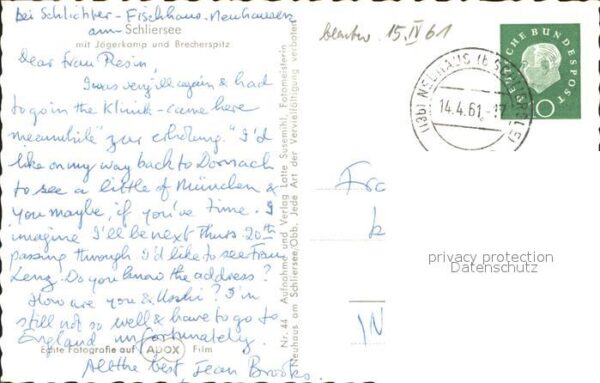 bei Schlichter - Fischhaus - Neuhausen
am Schliersee
mit Jägerkamp und Brecherspitz
Dear Frau Resin,
I was very ill again & had
to go in the Klinik - came here
meanwhile "zur erholung." I'd
like on my way back to Dornach
to see a little of München &
you maybe, if you've time. I
imagine I'll be next Thurs. 20th
passing through I'd like to see Frau
Lenz. Do you know the address?
How are you & Uschi? I'm
still not so well & have to go to
England unfortunately.
All the best Jean Brooks
Echte Fotografie auf APOX Film
Nr. 44 Aufnahme und Verlag Lotte Susemihl, Fotomeisterin
Neuhaus am Schliersee/Obb. Jede Art der Vervielfältigung verboten
15.IV 61
(13b) NEUHAUS (b SCHLIERSEE)
14.4.61.-17
DEUTSCHE BUNDESPOST
10
Fra
privacy protection
Datenschutz